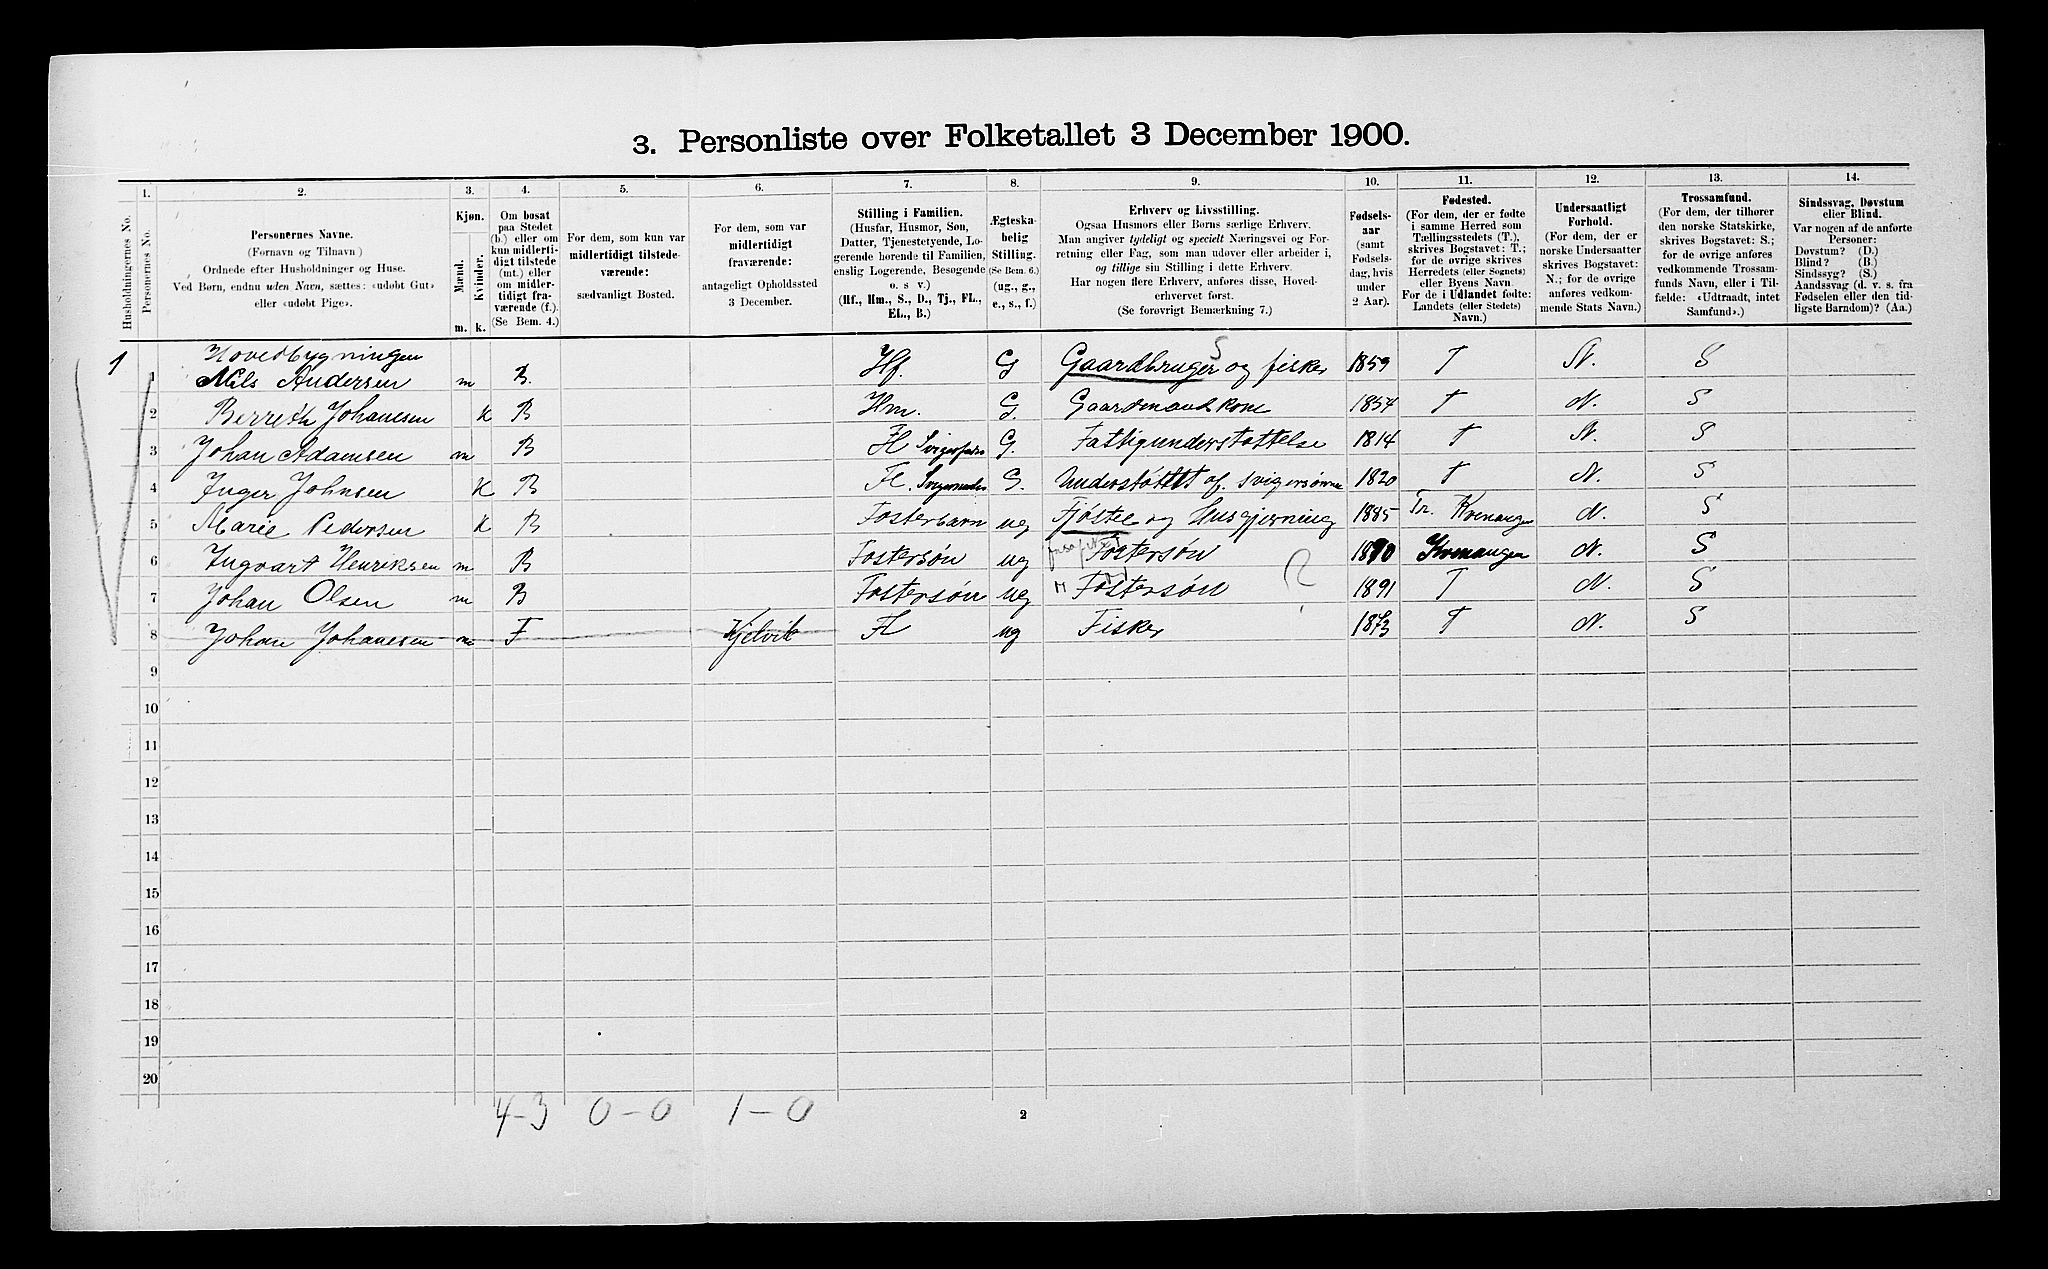 3. Personliste over Folketallet 3 December 1900.
1. 2. 3. 4. 5. 6. 7. 8. 9. 10. 11. 12. 13. 14.
Husholdningernes No.
Personernes No.
Personernes Navne.
(Fornavn og Tilnavn)
Ordnede efter Husholdninger og Huse.
Ved Børn, endnu uden Navn, sættes: «udøbt Gut»
eller «udøbt Pige».
Kjøn.
Mænd.
Kvinder.
m. k.
Om bosat
paa Stedet
(b.) eller om
kun midlerti-
digt tilstede
(mt.) eller
om midler-
tidigt fra-
værende (f.).
(Se Bem. 4.)
For dem, som kun var
midlertidigt tilstede-
værende:
sædvanligt Bosted.
For dem, som var
midlertidigt
fraværende:
antageligt Opholdssted
3 December.
Stilling i Familien.
(Husfar, Husmor, Søn,
Datter, Tjenestetyende, Lo-
gerende hørende til Familien,
enslig Logerende, Besøgende
o. s v.)
(Hf., Hm., S., D., Tj., FL.,
EL., B.)
Ægteska-
belig
Stilling.
(Se Bem. 6.)
(ug., g.,
e., s., f.)
Erhverv og Livsstilling.
Ogsaa Husmors eller Børns særlige Erhverv.
Man angiver tydeligt og specielt Næringsvei og For-
retning eller Fag, som man udøver eller arbeider i,
og tillige sin Stilling i dette Erhverv.
Har nogen flere Erhverv, anføres disse, Hoved-
erhvervet først.
(Se forøvrigt Bemærkning 7.)
Fødsels-
aar
(samt
Fødsels-
dag, hvis
under
2 Aar).
Fødested.
(For dem, der er fødte
i samme Herred som
Tællingsstedets (T.),
skrives Bogstavet: T.;
for de øvrige skrives
Herredets (eller Sognets)
eller Byens Navn.
For de i Udlandet fødte:
Landets (eller Stedets)
Navn.)
Undersaatligt
Forhold.
(For dem, der er
norske Undersaatter
skrives Bogstavet:
N.; for de øvrige
anføres vedkom-
mende Stats Navn.)
Trossamfund.
(For dem, der tilhører
den norske Statskirke,
skrives Bogstavet: S.;
for de øvrige anføres
vedkommende Trossam-
funds Navn, eller i Til-
fælde: «Udtraadt, intet
Samfund».)
Sindssvag, Døvstum
eller Blind.
Var nogen af de anførte
Personer:
Døvstum? (D.)
Blind? (B.)
Sindssyg? (S.)
Aandssvag (d. v. s. fra
Fødselen eller den tid-
ligste Barndom)? (Aa.)
1 Hovedbygningen
1 Nils Andersen m B. Hf. G Gaardbruger og fisker 1859 T N. S
2 Berreth Johanesen K B Hm. G. Gaardmandskone 1854 T N. S
3 Johan Adamsen m B Fl Svigerfader G. Fattigunderstøttelse 1814 T N. S
4 Inger Johnsen K B Fl. Svigermoder G. Understøttet af Svigersønnen 1820 T N. S
5 Marie Pedersen K B Fosterbarn ug Fjøstel og Husgjerning 1885 Tr. Kvenangen N. S
6 Ingvart Henriksen m B Fostersøn ug Fostersøn 1890 Kvenangen N. S
7 Johan Olsen m B Fostersøn ug Fostersøn 1891 T N. S
8 Johan Johanesen m F Kjelvik Fl ug Fisker 1873 T N. S
9
10
11
12
13
14
15
16
17
18
19
20
4-3 0-0 1-0
2